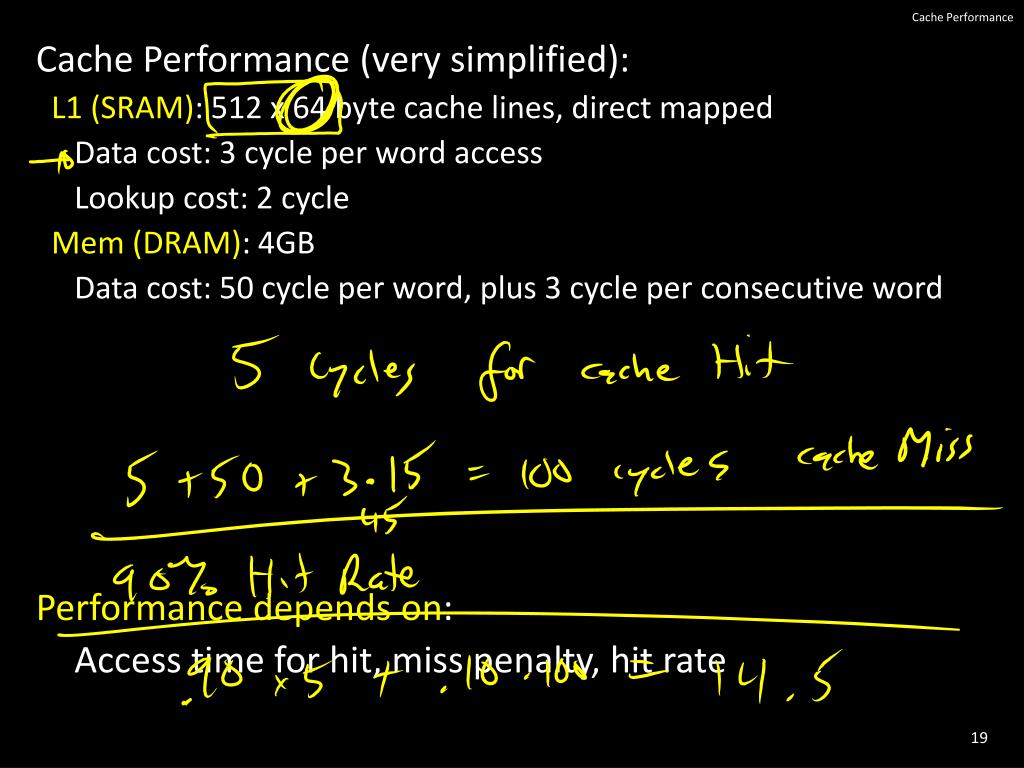 Cache Performance
Cache Performance (very simplified):
L1 (SRAM): 512 x 64 byte cache lines, direct mapped
Data cost: 3 cycle per word access
Lookup cost: 2 cycle
Mem (DRAM): 4GB
Data cost: 50 cycle per word, plus 3 cycle per consecutive word
5 cycles for cache Hit
5 + 50 + 3·15 = 100 cycles cache Miss
45
90% Hit Rate
Performance depends on:
Access time for hit, miss penalty, hit rate
.90 x 5 + .10 · 100 = 14.5
19